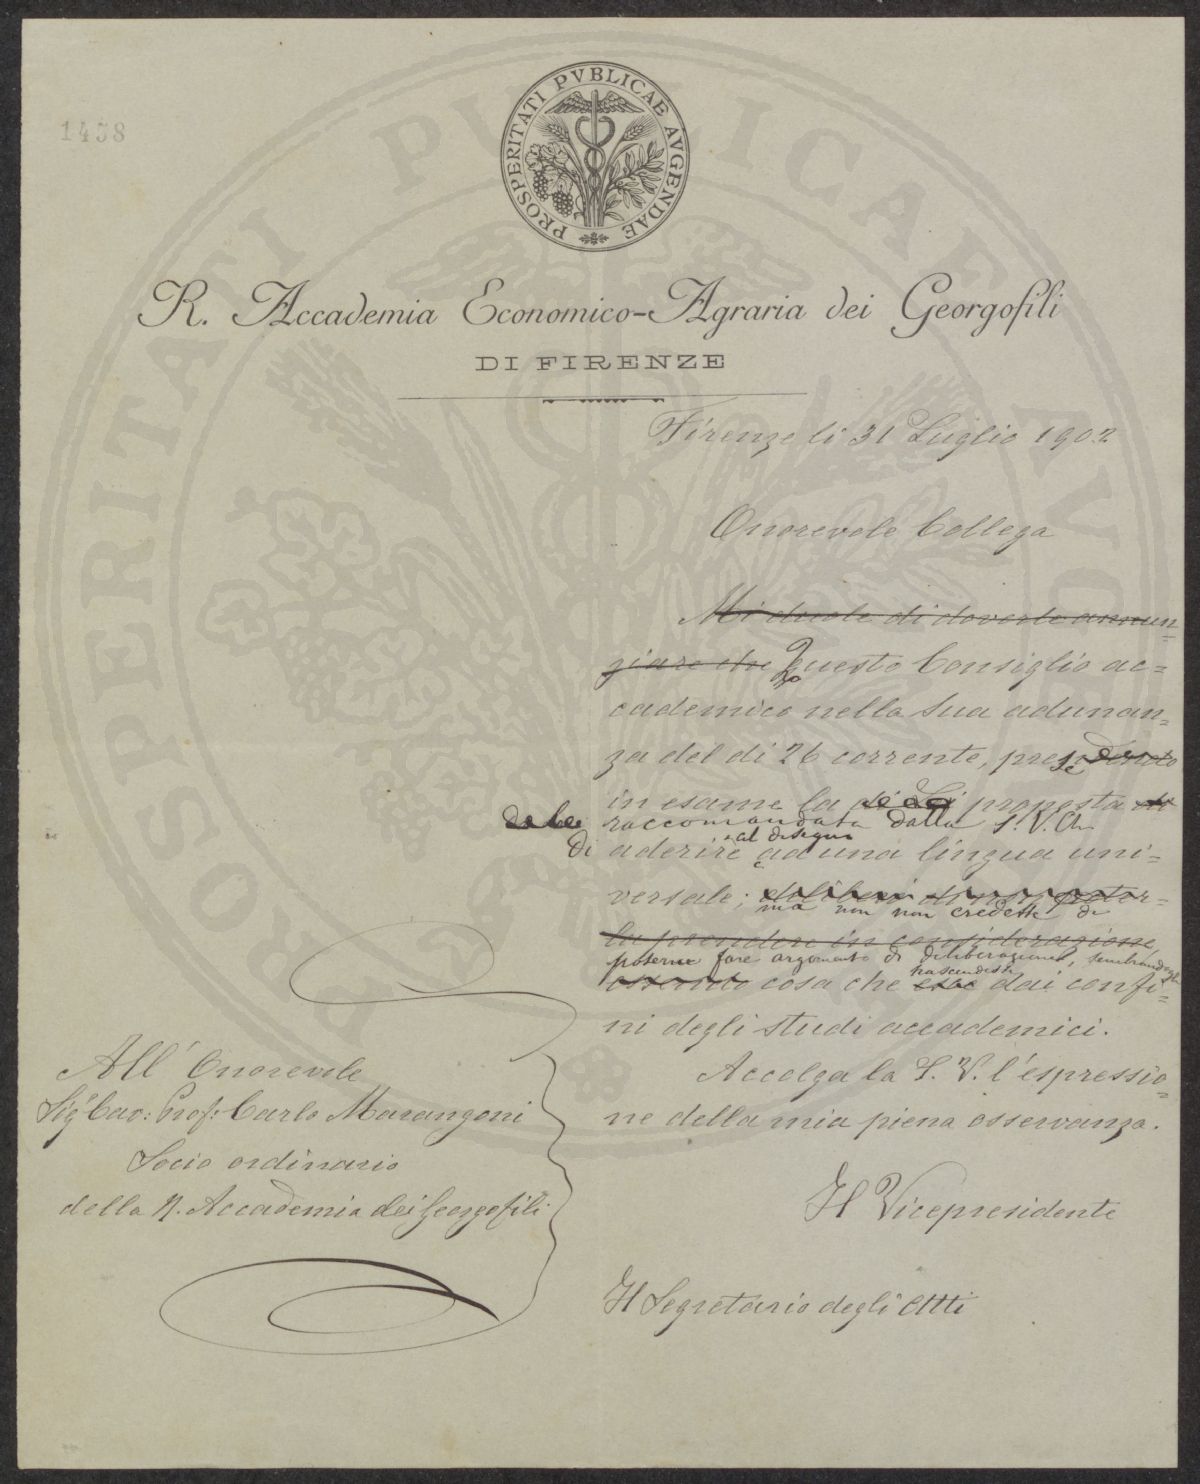 1458
PROSPERITATI PVBLICAE AVGENDAE
R. Accademia Economico-Agraria dei Georgofili
DI FIRENZE
Firenze li 31 Luglio 1902
Onorevole Collega
Mi duole di doverle annun-
ziare che Questo Consiglio ac=
cademico nella sua adunan-
za del dì 26 corrente, prese
in esame la di Lei proposta
raccomandata dalla S. V. Ch.
di aderire al disegno ad una lingua uni-
versale;
ma non credette di
prendere in considerazione,
poterne fare argomento di deliberazione, sembrandogli
essendo cosa che esce trascendesse dai confi-
ni degli studi accademici.
Accolga la S. V. l'espressio-
ne della mia piena osservanza.
Il Vicepresidente
Il Segretario degli Atti
All' Onorevole
Sig. Cav: Prof: Carlo Marangoni
Socio ordinario
della R. Accademia dei Georgofili